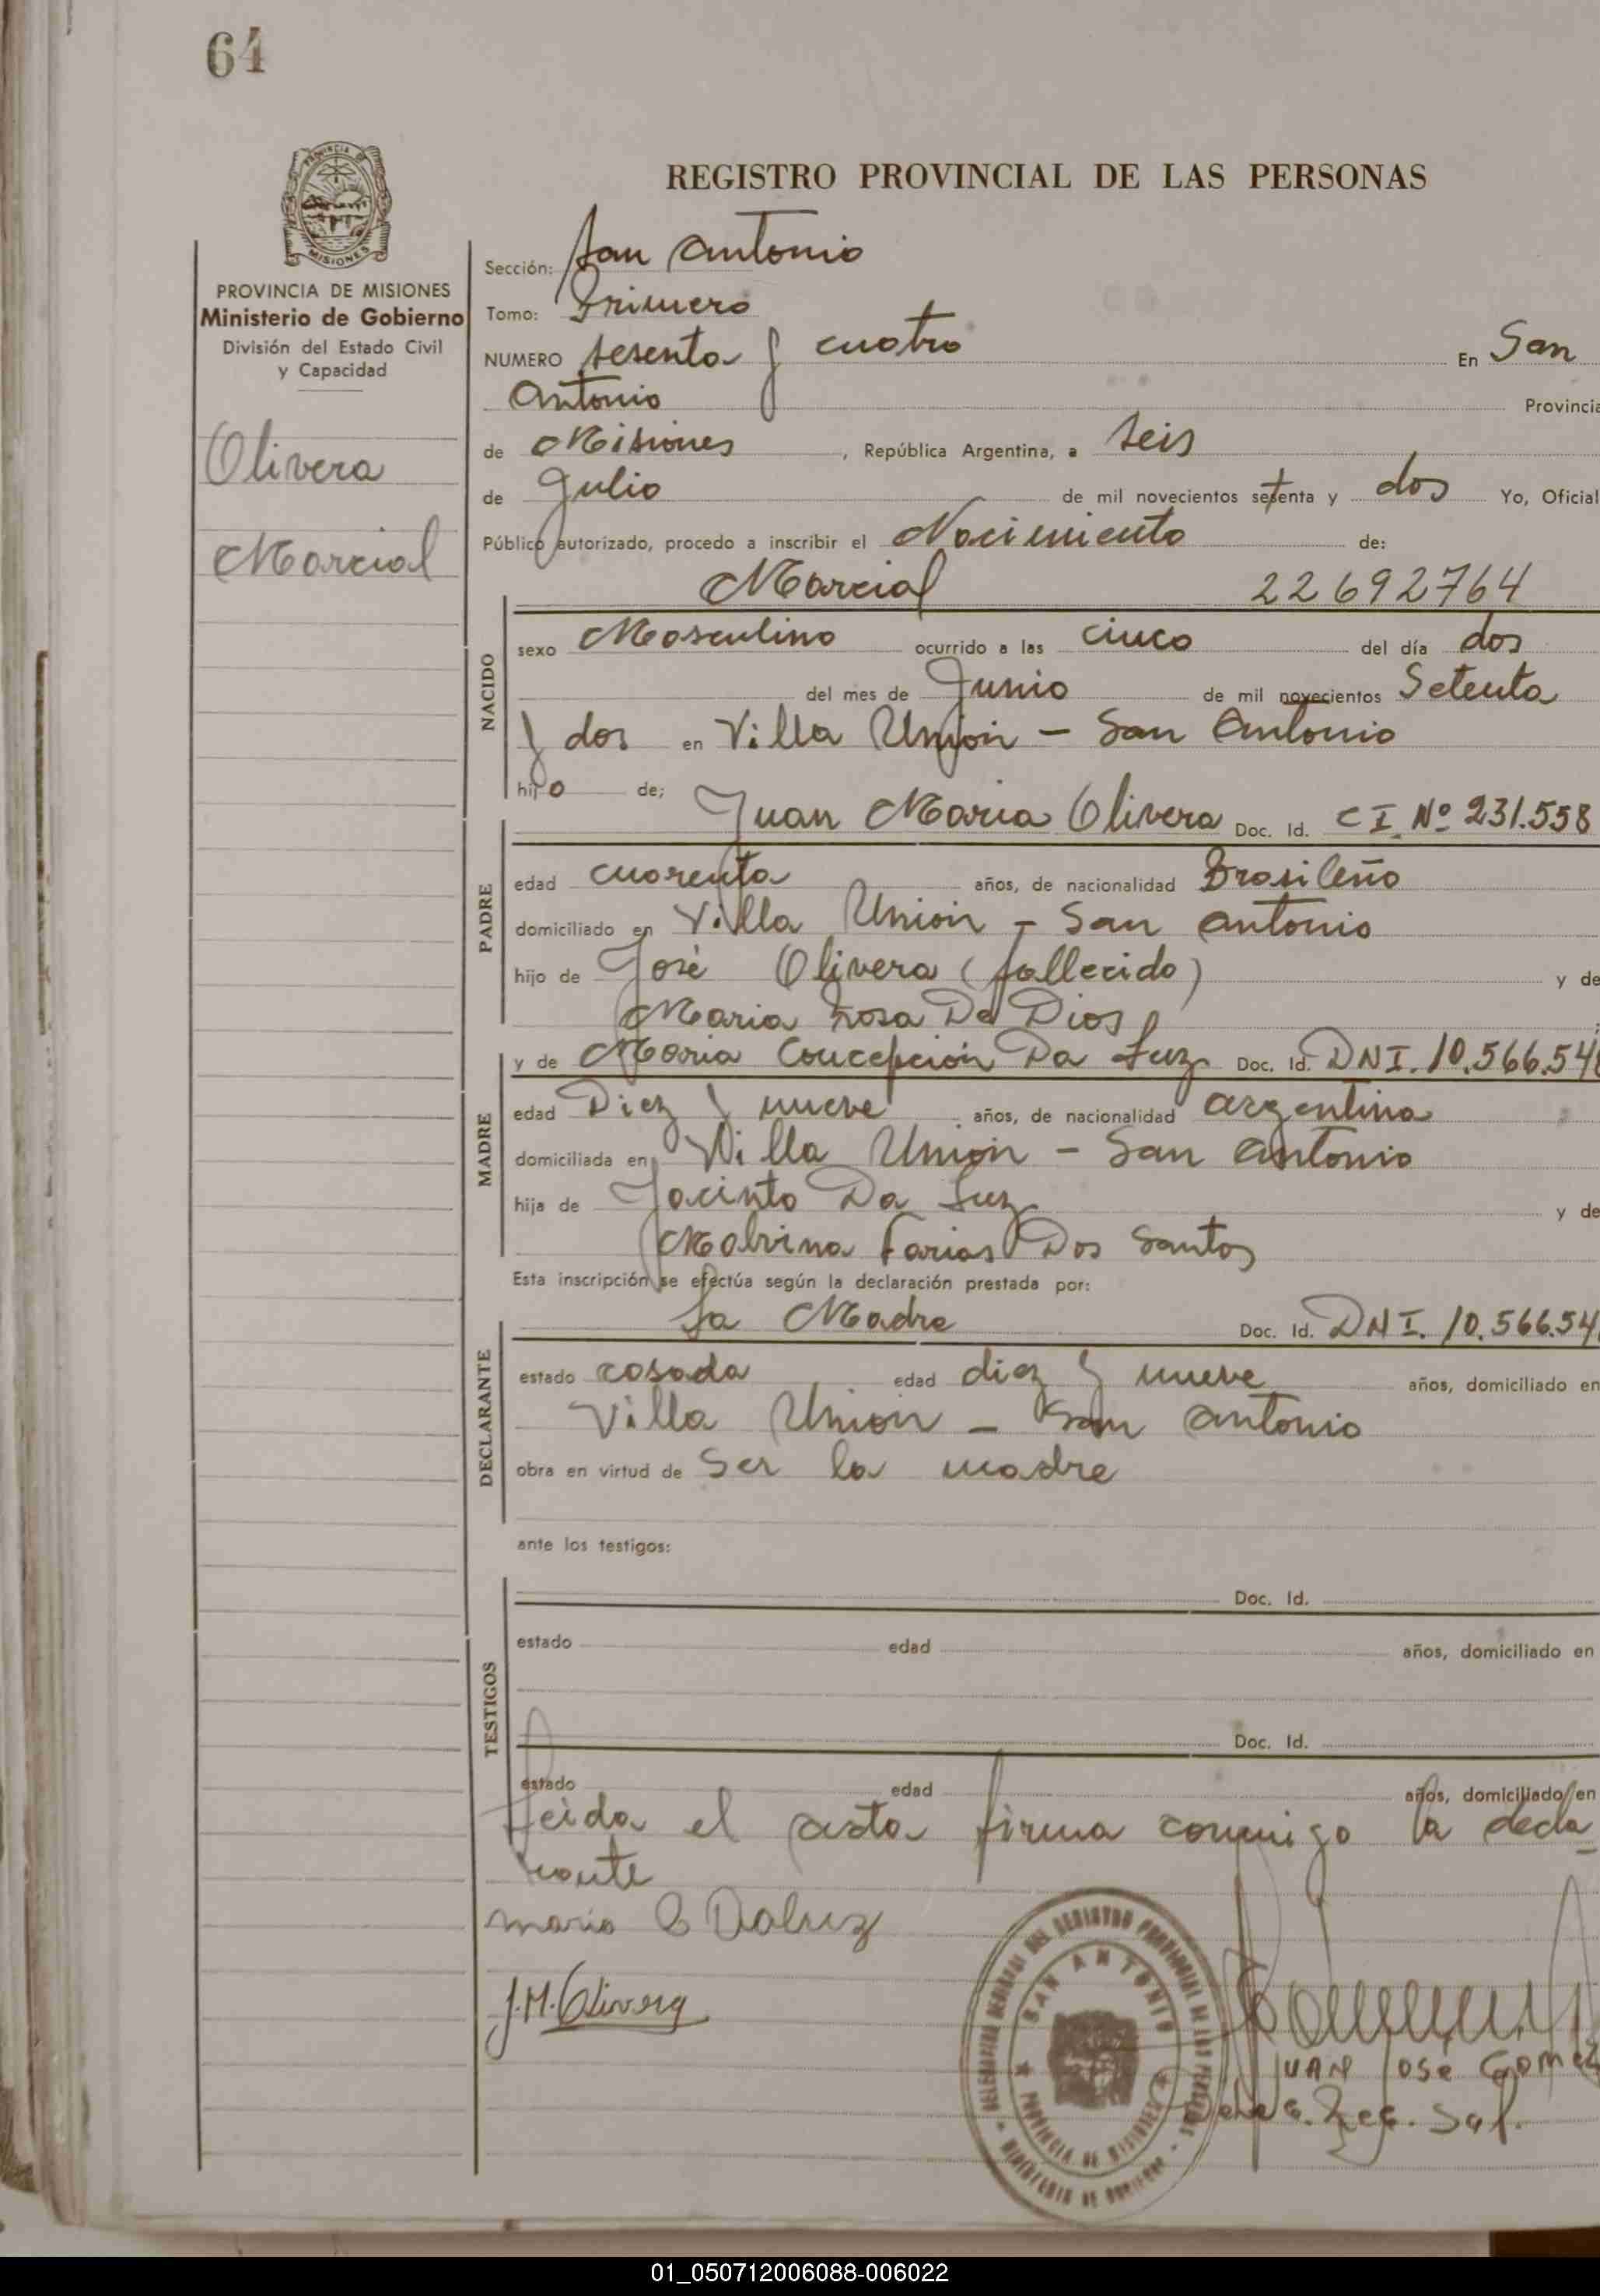 64
PROVINCIA DE MISIONES
MISIONES
PROVINCIA DE MISIONES
Ministerio de Gobierno
División del Estado Civil
y Capacidad
Olivera
Marcial
REGISTRO PROVINCIAL DE LAS PERSONAS
Sección: San Antonio
Tomo: Primero
NUMERO sesenta y cuatro En San
Antonio Provincia
de Misiones, República Argentina, a seis
de Julio de mil novecientos setenta y dos Yo, Oficial
Público autorizado, procedo a inscribir el Nacimiento de:
Marcial 22692764
NACIDO
sexo Masculino ocurrido a las cinco del día dos
del mes de Junio de mil novecientos Setenta
y dos en Villa Unión - San Antonio
hijo de;
PADRE
Juan Maria Olivera Doc. Id. C I. Nº 231.558
edad cuarenta años, de nacionalidad Brasileño
domiciliado en Villa Unión - San Antonio
hijo de José Olivera (fallecido) y de
Maria Rosa De Dios
MADRE
y de Maria Concepción Da Luz Doc. Id. DNI. 10.566.54
edad Diez y nueve años, de nacionalidad argentina
domiciliada en Villa Unión - San Antonio
hija de Jacinto Da Luz y de
Malvina Farias Dos Santos
Esta inscripción se efectúa según la declaración prestada por:
DECLARANTE
La Madre Doc. Id. DNI. 10.566.54
estado casada edad diez y nueve años, domiciliado en
Villa Unión - San Antonio
obra en virtud de Ser la madre
ante los testigos:
TESTIGOS
Doc. Id.
estado edad años, domiciliado en
Doc. Id.
estado edad años, domiciliado en
Leida el acta firma conmigo la decla
rante
maria C Daluz
J.M. Olivera
SAN ANTONIO
PROVINCIA DE MISIONES
MINISTERIO DE GOBIERNO
JUAN JOSE GOMEZ
01_050712006088-006022